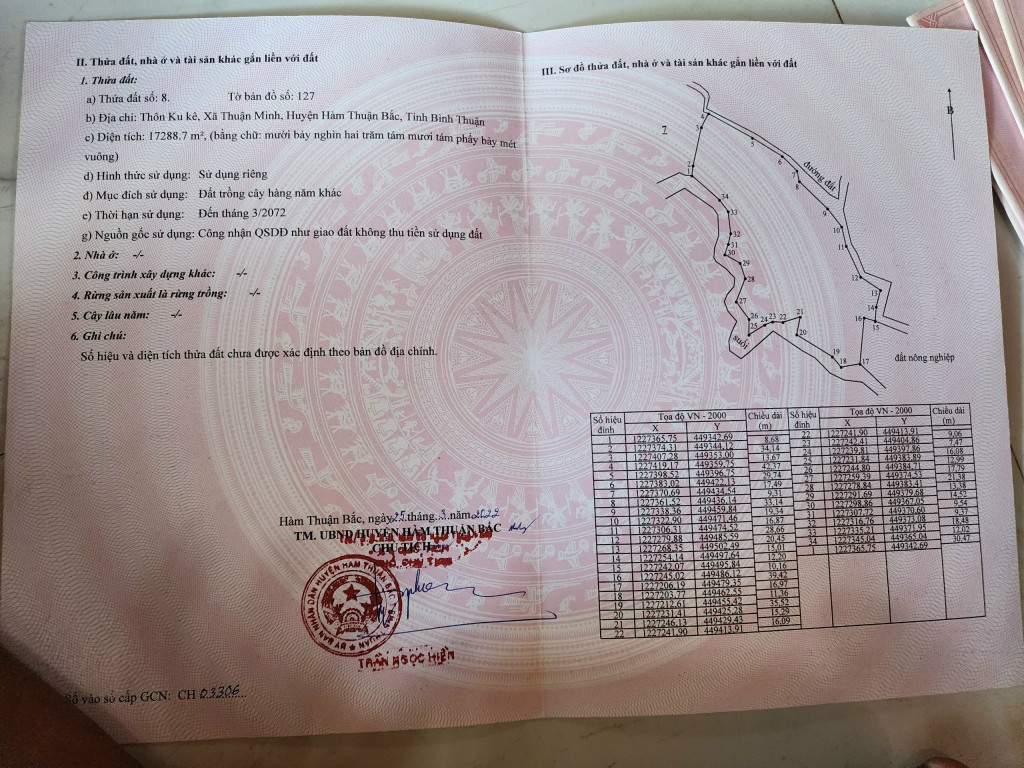 II. Thửa đất, nhà ở và tài sản khác gắn liền với đất
1. Thửa đất:
a) Thửa đất số: 8. Tờ bản đồ số: 127
b) Địa chỉ: Thôn Ku kê, Xã Thuận Minh, Huyện Hàm Thuận Bắc, Tỉnh Bình Thuận
c) Diện tích: 17288.7 m², (bằng chữ: mười bảy nghìn hai trăm tám mươi tám phẩy bảy mét
vuông)
d) Hình thức sử dụng: Sử dụng riêng
đ) Mục đích sử dụng: Đất trồng cây hàng năm khác
e) Thời hạn sử dụng: Đến tháng 3/2072
g) Nguồn gốc sử dụng: Công nhận QSDĐ như giao đất không thu tiền sử dụng đất
2. Nhà ở: -/-
3. Công trình xây dựng khác: -/-
4. Rừng sản xuất là rừng trồng: -/-
5. Cây lâu năm: -/-
6. Ghi chú:
Số hiệu và diện tích thửa đất chưa được xác định theo bản đồ địa chính.
Hàm Thuận Bắc, ngày 25 tháng 3 năm 2022
TM. UBND HUYỆN HÀM THUẬN BẮC
CHỦ TỊCH
PHÓ CHỦ TỊCH
TRẦN NGỌC HIỀN
Số vào sổ cấp GCN: CH 03306
III. Sơ đồ thửa đất, nhà ở và tài sản khác gắn liền với đất
B
7
đường đất
suối
đất nông nghiệp
Số hiệu đỉnh Tọa độ VN - 2000 Chiều dài (m) Số hiệu đỉnh Tọa độ VN - 2000 Chiều dài (m)
X Y X Y
1227365.75 449342.69 8.68
2 1227374.31 449344.12 34.14
3 1227407.28 449353.00 13.67
4 1227419.17 449359.75 42.37
5 1227398.52 449396.75 29.74
6 1227383.02 449422.13 17.49
7 1227370.69 449434.54 9.31
8 1227361.52 449436.14 33.14
9 1227338.36 449459.84 19.34
10 1227322.90 449471.46 16.87
11 1227306.31 449474.52 28.66
12 1227279.88 449485.59 20.45
13 1227268.35 449502.49 15.01
14 1227254.14 449497.64 12.20
15 1227242.07 449495.84 10.16
16 1227245.02 449486.12 39.42
17 1227206.19 449479.35 16.97
18 1227203.77 449462.55 11.36
19 1227212.61 449455.42 35.52
20 1227231.41 449425.28 15.29
21 1227246.13 449429.43 16.09
22 1227241.90 449413.91
22 1227241.90 449413.91 9.06
23 1227242.41 449404.86 7.47
24 1227239.81 449397.86 16.08
25 1227231.84 449383.89 12.99
26 1227244.80 449384.71 17.79
27 1227259.39 449374.53 21.38
28 1227278.84 449383.41 13.38
29 1227291.69 449379.68 14.52
30 1227298.86 449367.05 9.54
31 1227307.72 449370.60 9.37
32 1227316.76 449373.08 18.48
33 1227335.21 449371.95 12.02
34 1227345.04 449365.04 30.47
1227365.75 449342.69